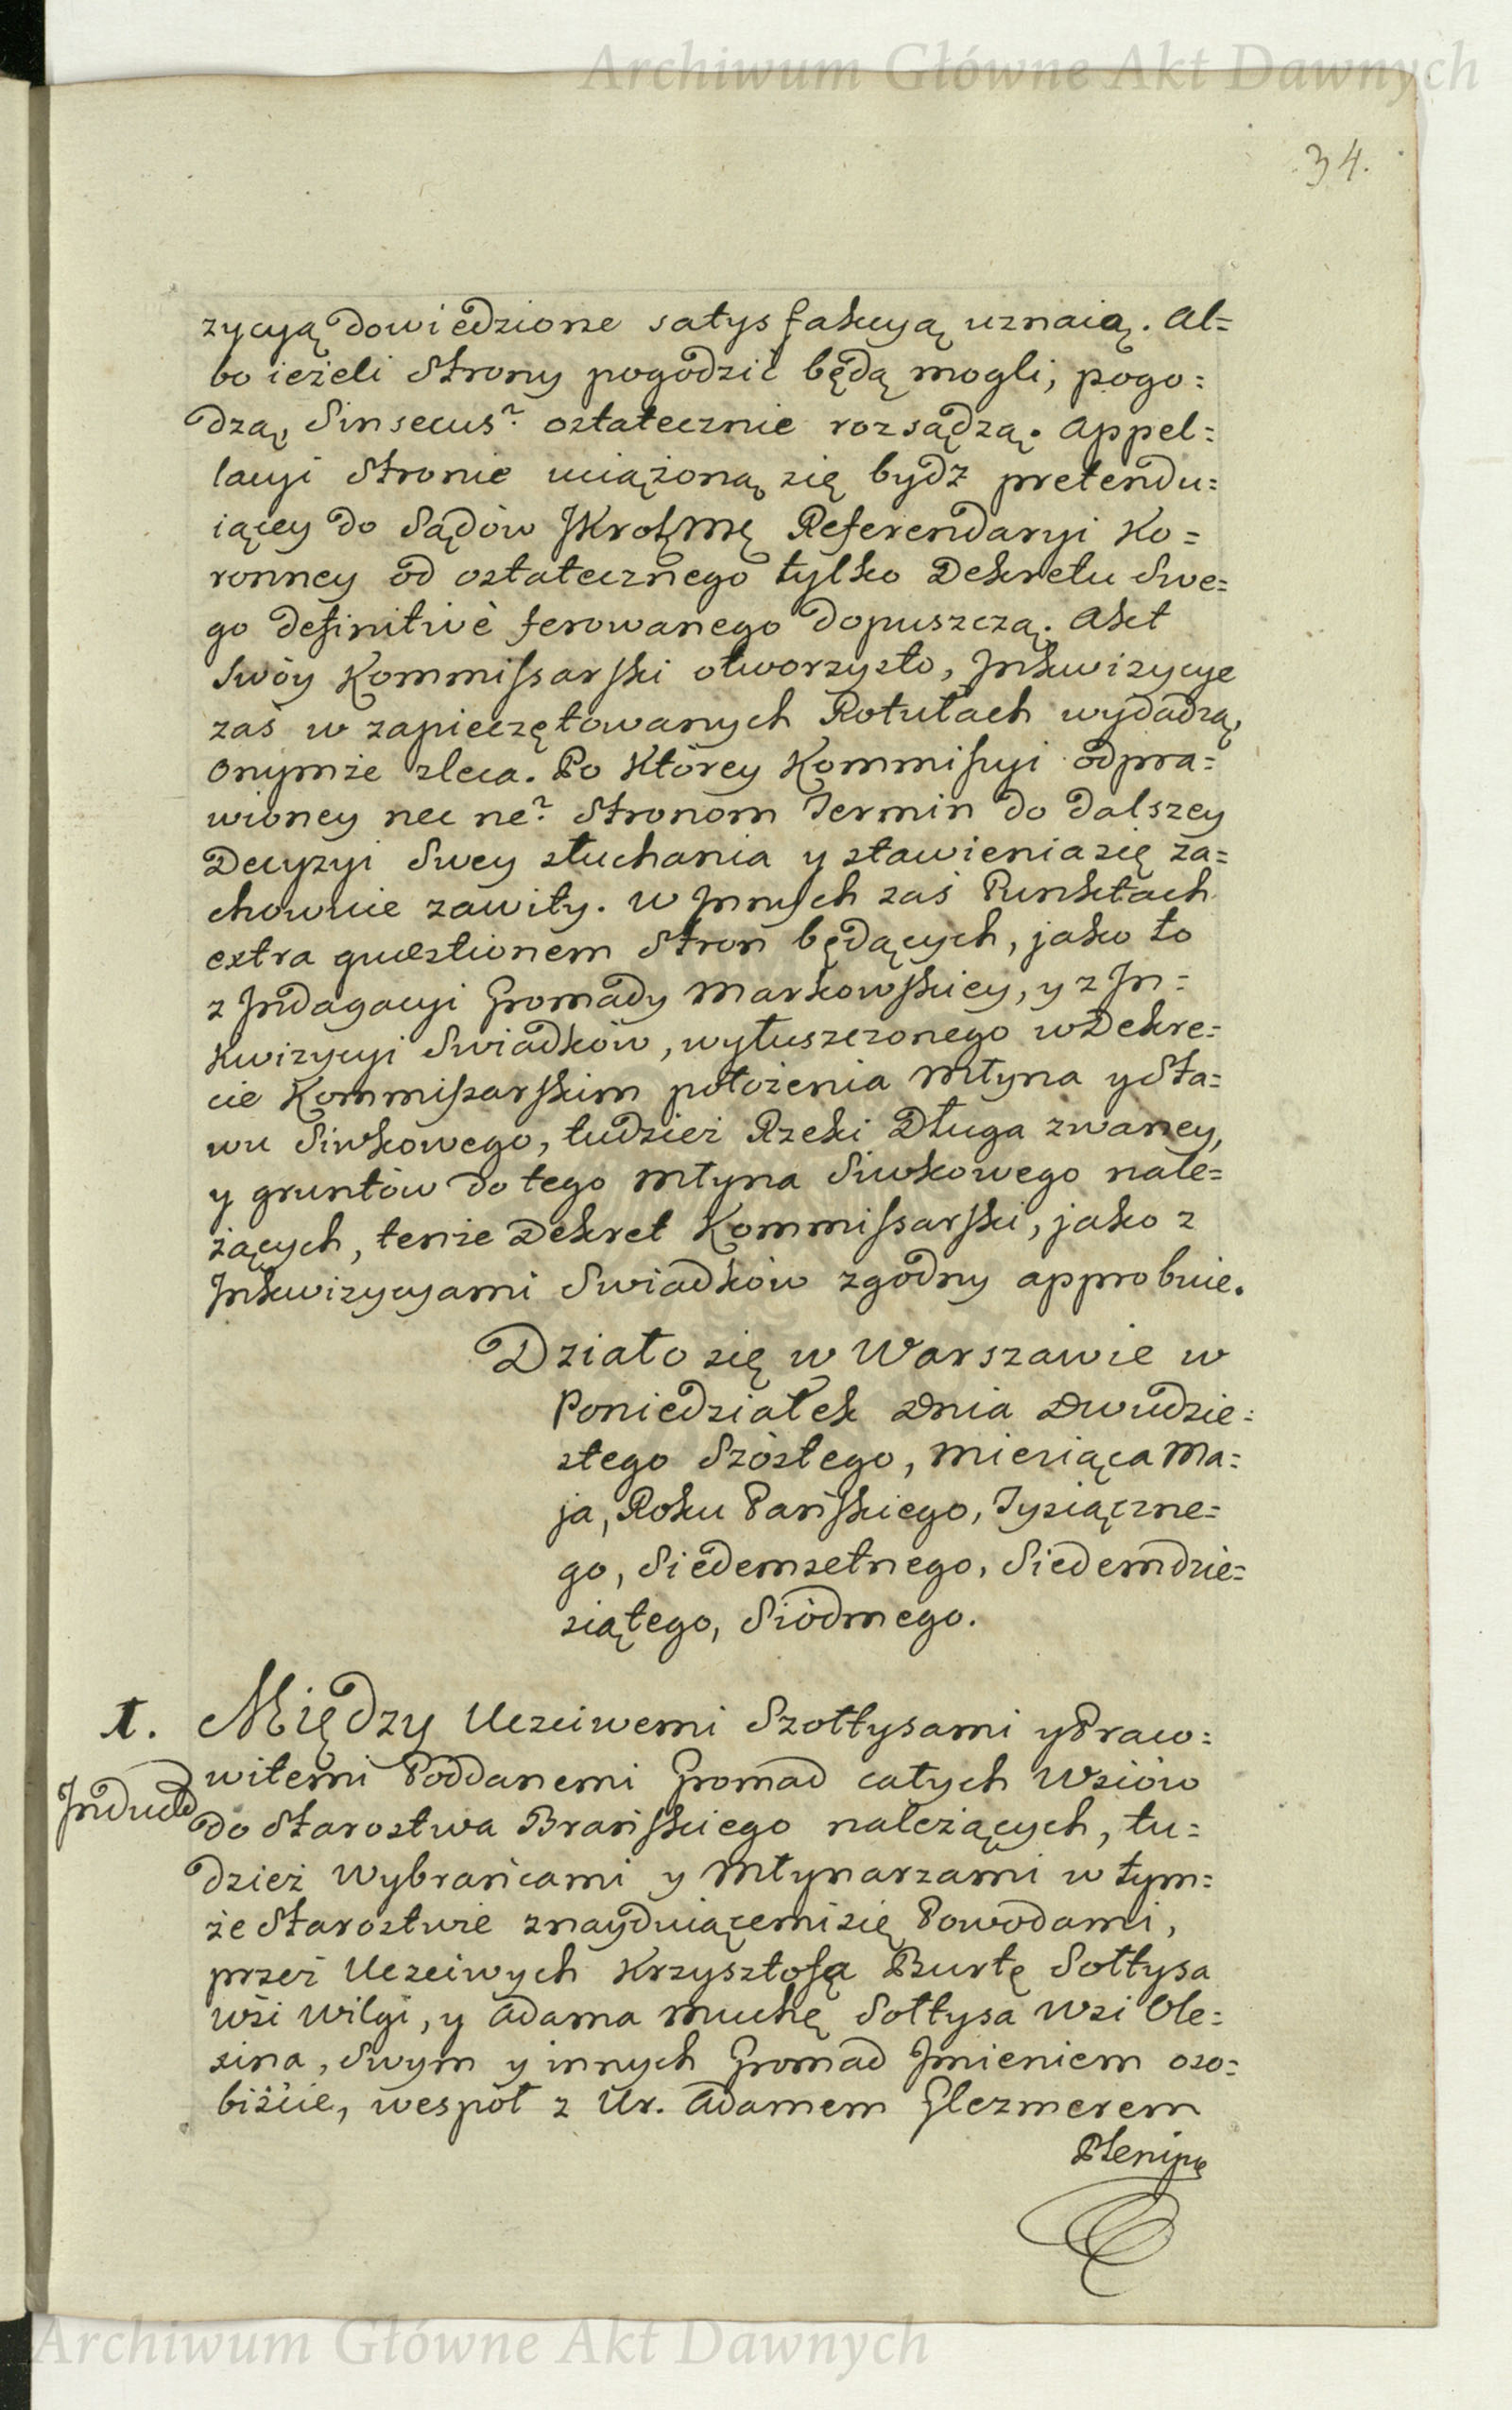 Archiwum Główne Akt Dawnych
34.
zycyą dowiedzione satysfakcyą uznaią. Al=
bo ieżeli Strony pogodzić będą mogli, pogo=
dzą, Sinsecus? ostatecznie rozsądzą. Appel=
lacyi Stronie uciążoną się bydź pretendu=
iącey do Sądów JKrołMę Referendaryi Ko=
ronney od ostatecznego tylko Dekretu Swe=
go definitivè ferowanego dopuszczą. Akt
Swóy Kommissarski otworzysto, Inkwizycye
zaś w zapieczętowanych Rotułach wydadzą,
onymże zleca. Po Którey Kommissyi odpra=
wioney nec ne? Stronom Termin do dalszey
Decyzyi Swey słuchania y stawienia się za=
chowuie zawity. W Innych zaś Punktach
extra quæstionem Stron będących, jako to
z Indagacyi Gromady Markowskiey, y z In=
kwizycyi Swiadków, wyłuszczonego w Dekre=
cie Kommissarskim położenia Młyna y Sta=
wu Siwkowego, tudzież Rzeki Długa zwaney,
y gruntów do tego Młyna Siwkowego nale=
żących, tenże Dekret Kommissarski, jako z
Inkwizycyami Swiadków zgodny approbuie.
Działo się w Warszawie w
Poniedziałek Dnia Dwudzie=
stego Szóstego, Miesiąca Ma=
ja, Roku Pańskiego, Tysiączne=
go, Siedemsetnego, Siedemdzie=
siątego, Siódmego.
1. Między Uczciwemi Szołtysami y Praco=
witemi Poddanemi Gromad całych Wsiów
Inducta do Starostwa Brańskiego należących, tu=
dzież Wybrańcami y Młynarzami w tym=
że Starostwie znayduiącemi się Powodami,
przez Uczciwych Krzysztofa Burtę Sołtysa
wsi Wilgi, y Adama Muchę Sołtysa Wsi Ole=
sina, Swym y innych Gromad Imieniem oso=
biście, wespół z Ur. Adamem Glezmerem
Plenipo
Archiwum Główne Akt Dawnych